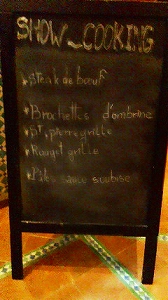 SHOW_COOKING
* Steak de bœuf
* Brochettes d'ombrine
* pt. pierre grille
* Rouget grille
* Pâtes sauce soubise